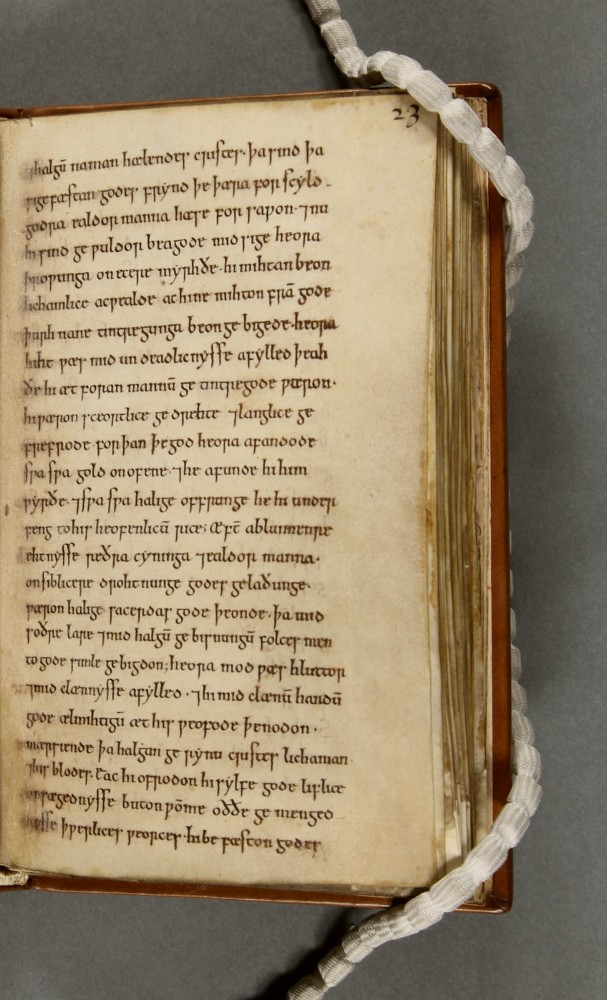 23
halgū naman hælendes cristes· þa sind þa
sigefæstan godes frynd þe þæra for scyld
godra ealdor manna hæse for sapon· ⁊ nu
hi sind ge puldor beagode mid sige heora
þropunga on ecere myrhðe· hi mihtan beon
lichamlice acpealde ac hi ne mihton frā gode
þurh nane tintregunga beon ge bigede· heora
hiht pæs mid un deadlicnysse afylled þeah
ðe hi æt foran mannū ge tintregode pæron·
hi pæron sceortlice ge drehte ⁊ langlice ge
frefrode· for þan þe god heora afandode
spa spa gold on ofene· ⁊ he afunde hi him
pyrðe· ⁊ spa spa halige offrunge he hi under
feng to his heofenlicū rice; Æft̄ ablunnenre
ehtnysse reðra cyninga ⁊ ealdor manna·
on siblicere drohtnunge godes gelaðunge·
pæron halige sacerdas gode þeonde· þa mid
soðre lare ⁊ mid halgū ge bisnungū folces men
to gode simle gebigdon; heora mod pæs hluttor
⁊ mid clænnysse afylled· ⁊ hi mid clænū handū
gode ælmihtigū æt his peofode þenodon·
mærsiende þa halgan ge rynu cristes lichaman
⁊ his blodes· Eac hi offrodon hi sylfe gode liflice
onsægednysse buton pōme oððe ge menged
nysse þperlices peorces· hi be fæston godes